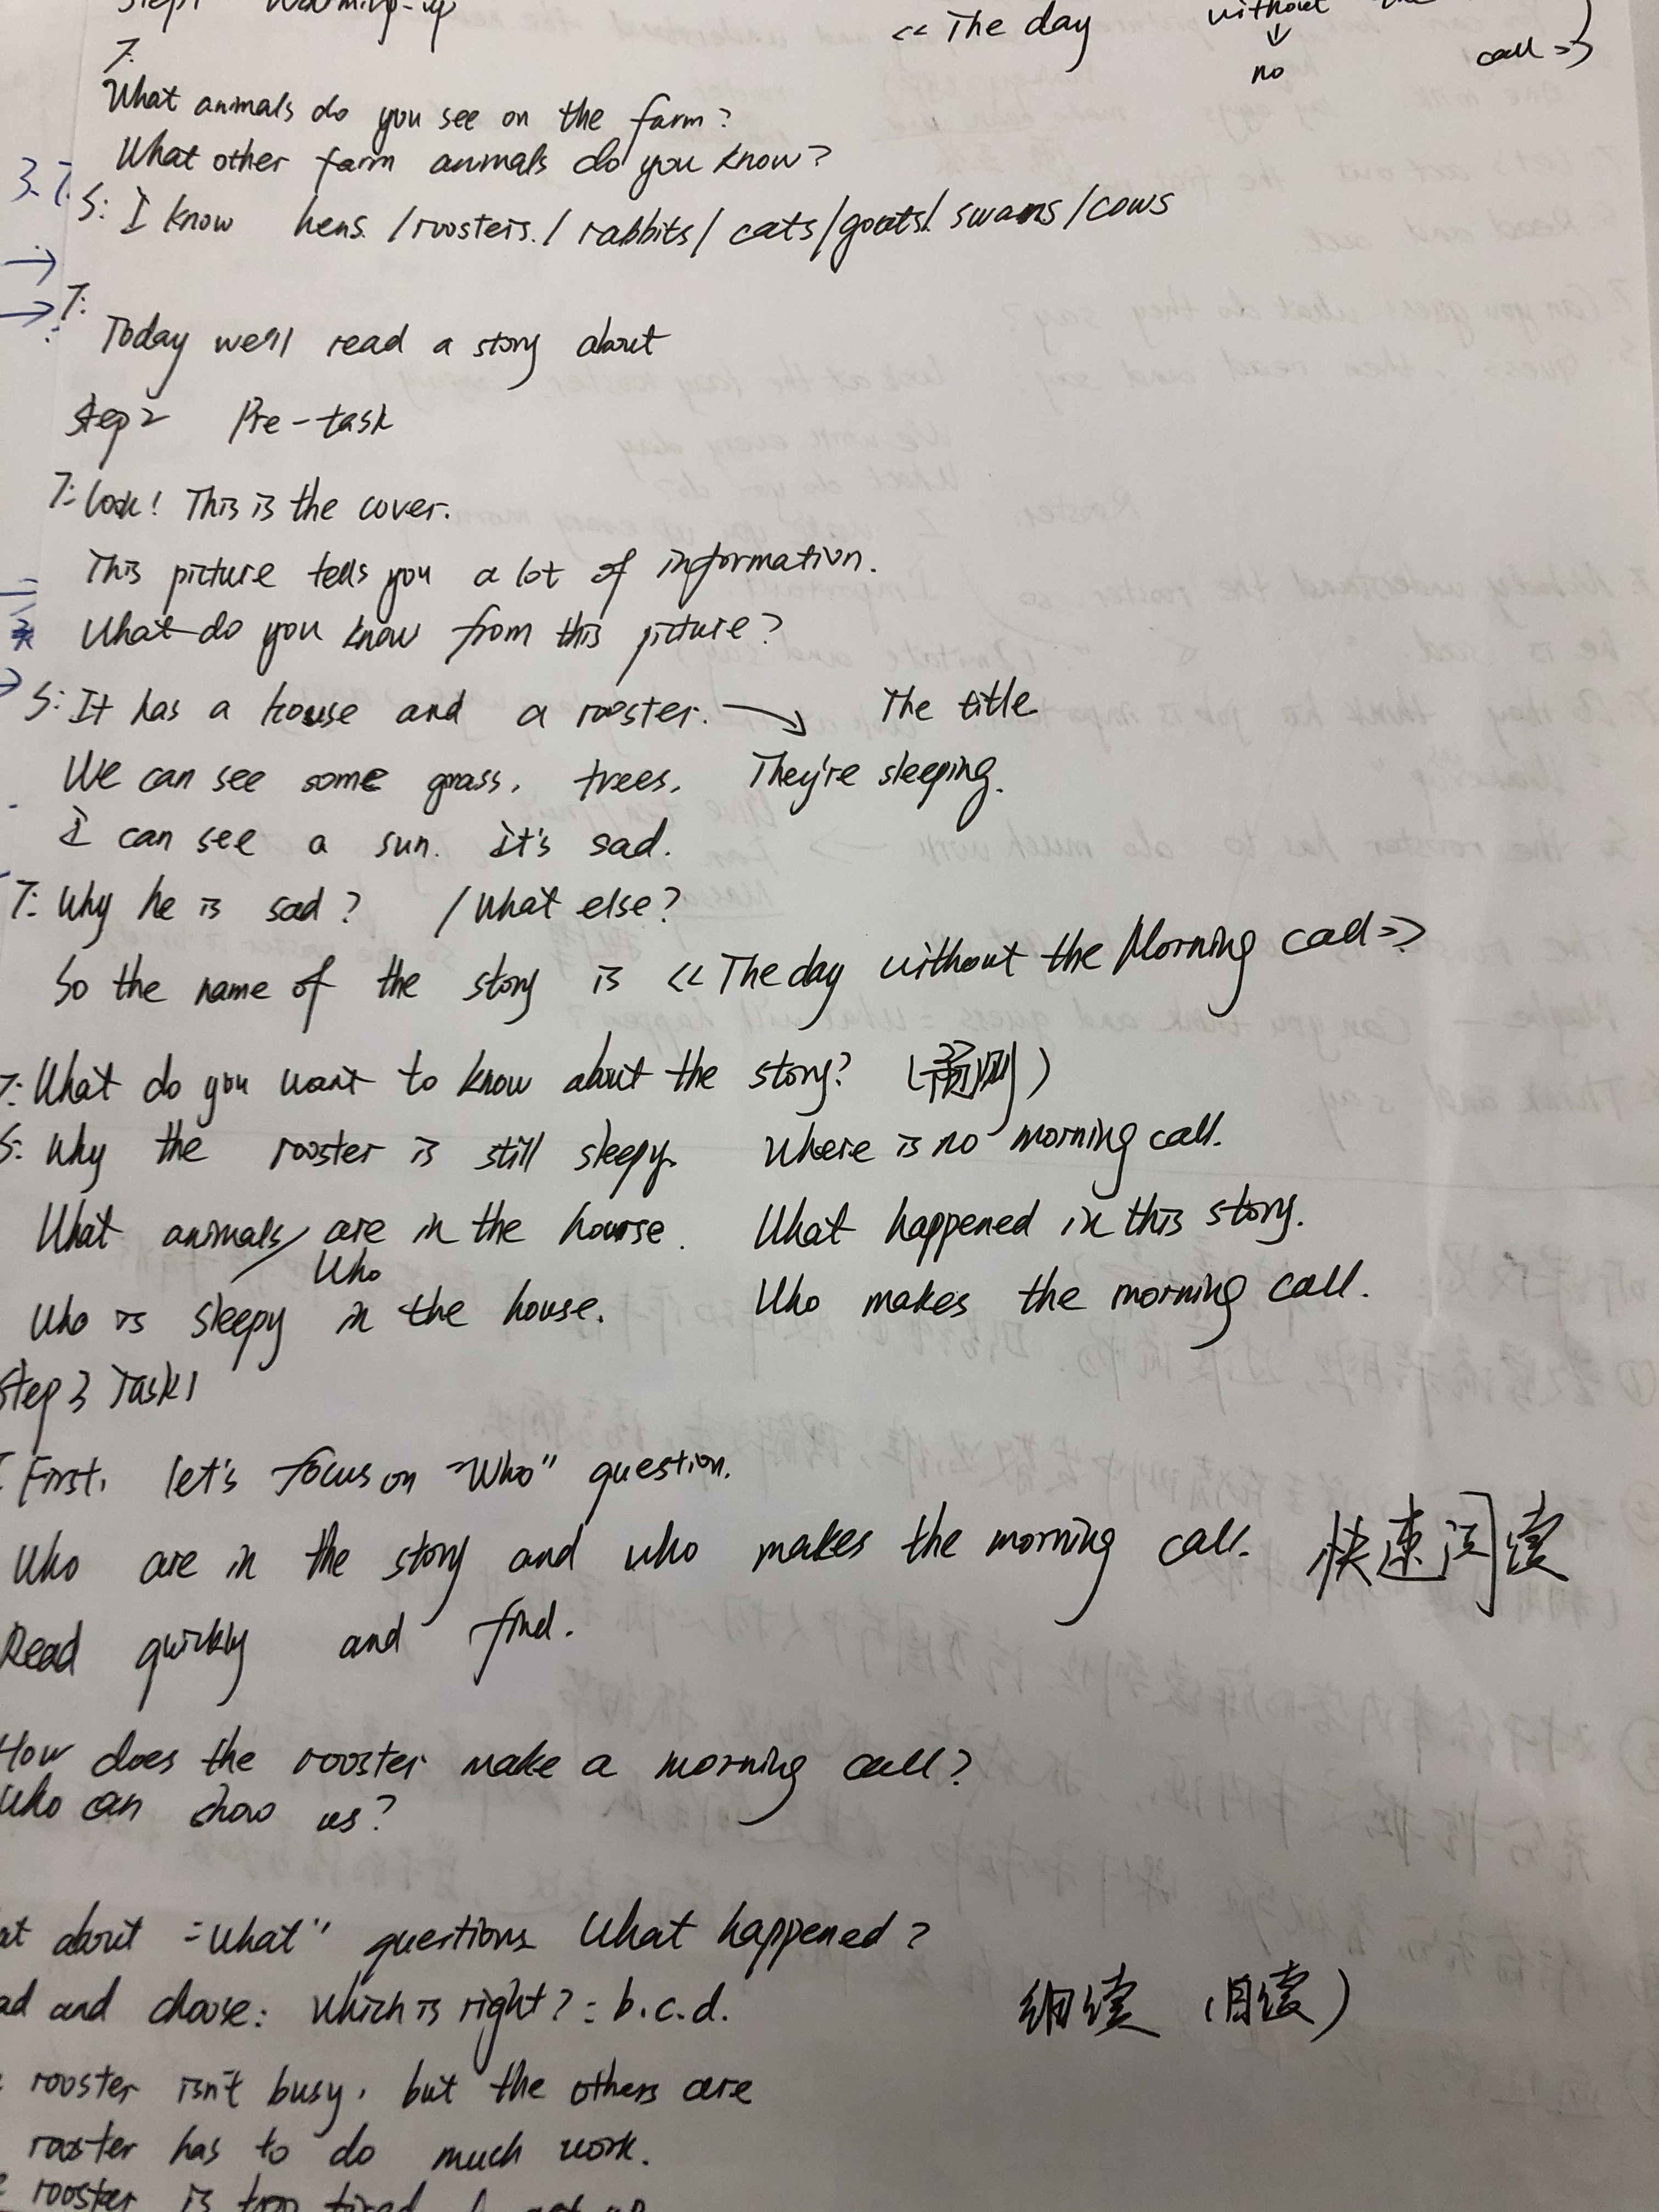 Step1 Warming-up
<<The day without the
↓
no
call>>
T:
What animals do you see on the farm?
What other farm animals do you know?
S: I know hens. /roosters. / rabbits/ cats/goats/ swans /cows
T:
Today we'll read a story about
Step2 Pre-task
T: Look! This is the cover.
This picture tells you a lot of information.
What do you know from this picture?
S: It has a house and a rooster. → The title
We can see some grass, trees. They're sleeping.
I can see a sun. It's sad.
T: Why he is sad? /What else?
So the name of the story is <<The day without the Morning call>>
T: What do you want to know about the story? (预测)
S: Why the rooster is still sleepy. Where is no morning call.
What animals/ are in the hourse. What happened in this story.
Who
Who is sleepy in the house. Who makes the morning call.
Step 3 Task1
First, let's focus on "Who" question.
Who are in the story and who makes the morning call. 快速阅读
Read quickly and find.
How does the rooster make a morning call?
Who can show us?
at about "What" questions What happened?
ad and choose: Which is right?: b.c.d. 细读 (自读)
rooster isn't busy, but the others are
rooster has to do much work.
rooster is too tired